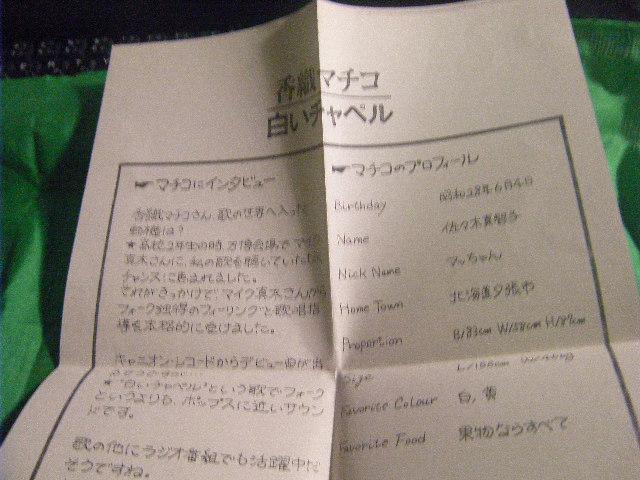 香織マチコ
白いチャペル
☛マチコにインタビュー
香織マチコさん、歌の世界へ入った
動機は?
★高校2年生の時、万博会場でマイク
真木さんに、私の歌を聴いていただく
チャンスに恵まれました。
それがきっかけで、マイク真木さんから
フォーク独得のフィーリングと歌唱指
導を本格的に受けました。
キャニオン・レコードからデビュー曲が出
★"白いチャペル"という歌でフォーク
というよりも、ポップスに近いサウン
ドです。
歌の他にラジオ番組でも活躍中だ
そうですね。
☛マチコのプロフィール
Birthday 昭和28年6月4日
Name 佐々木真智子
Nick Name マッちゃん
Home Town 北海道夕張市
Proportion B/83cm W/58cm H/87cm
Size
Favorite Colour 白,黄
Favorite Food 果物ならすべて